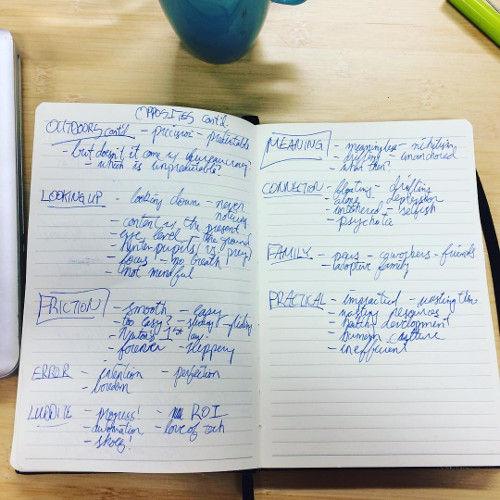 OPPOSITES cont'd.
OUTDOORS cont'd - precision - predictable
- but doesn't it come w/ bureaucracy
- which is unpredictable?
LOOKING UP - looking down - never noticing
- content w/ the present
- eye level - the ground
- hunter pupils is prey
- focus - no breath
- not mindful
FRICTION - smooth - easy
- too easy? - sliding - gliding
- Newton's 1st law
- forever - slippery
ERROR - perfection
- boredom
LUDDITE - progress! - ROI
- automation - love of tech
- shoes!
MEANING - meaningless - nihilism
- drifting - unanchored
- what then?
CONNECTION - floating - drifting
- alone - depression
- untethered - selfish
- psychotic
FAMILY - peers - coworkers - friends
- adoptive family
PRACTICAL - impractical - wasting time
- wasting resources
- development
- human capture
- inefficient